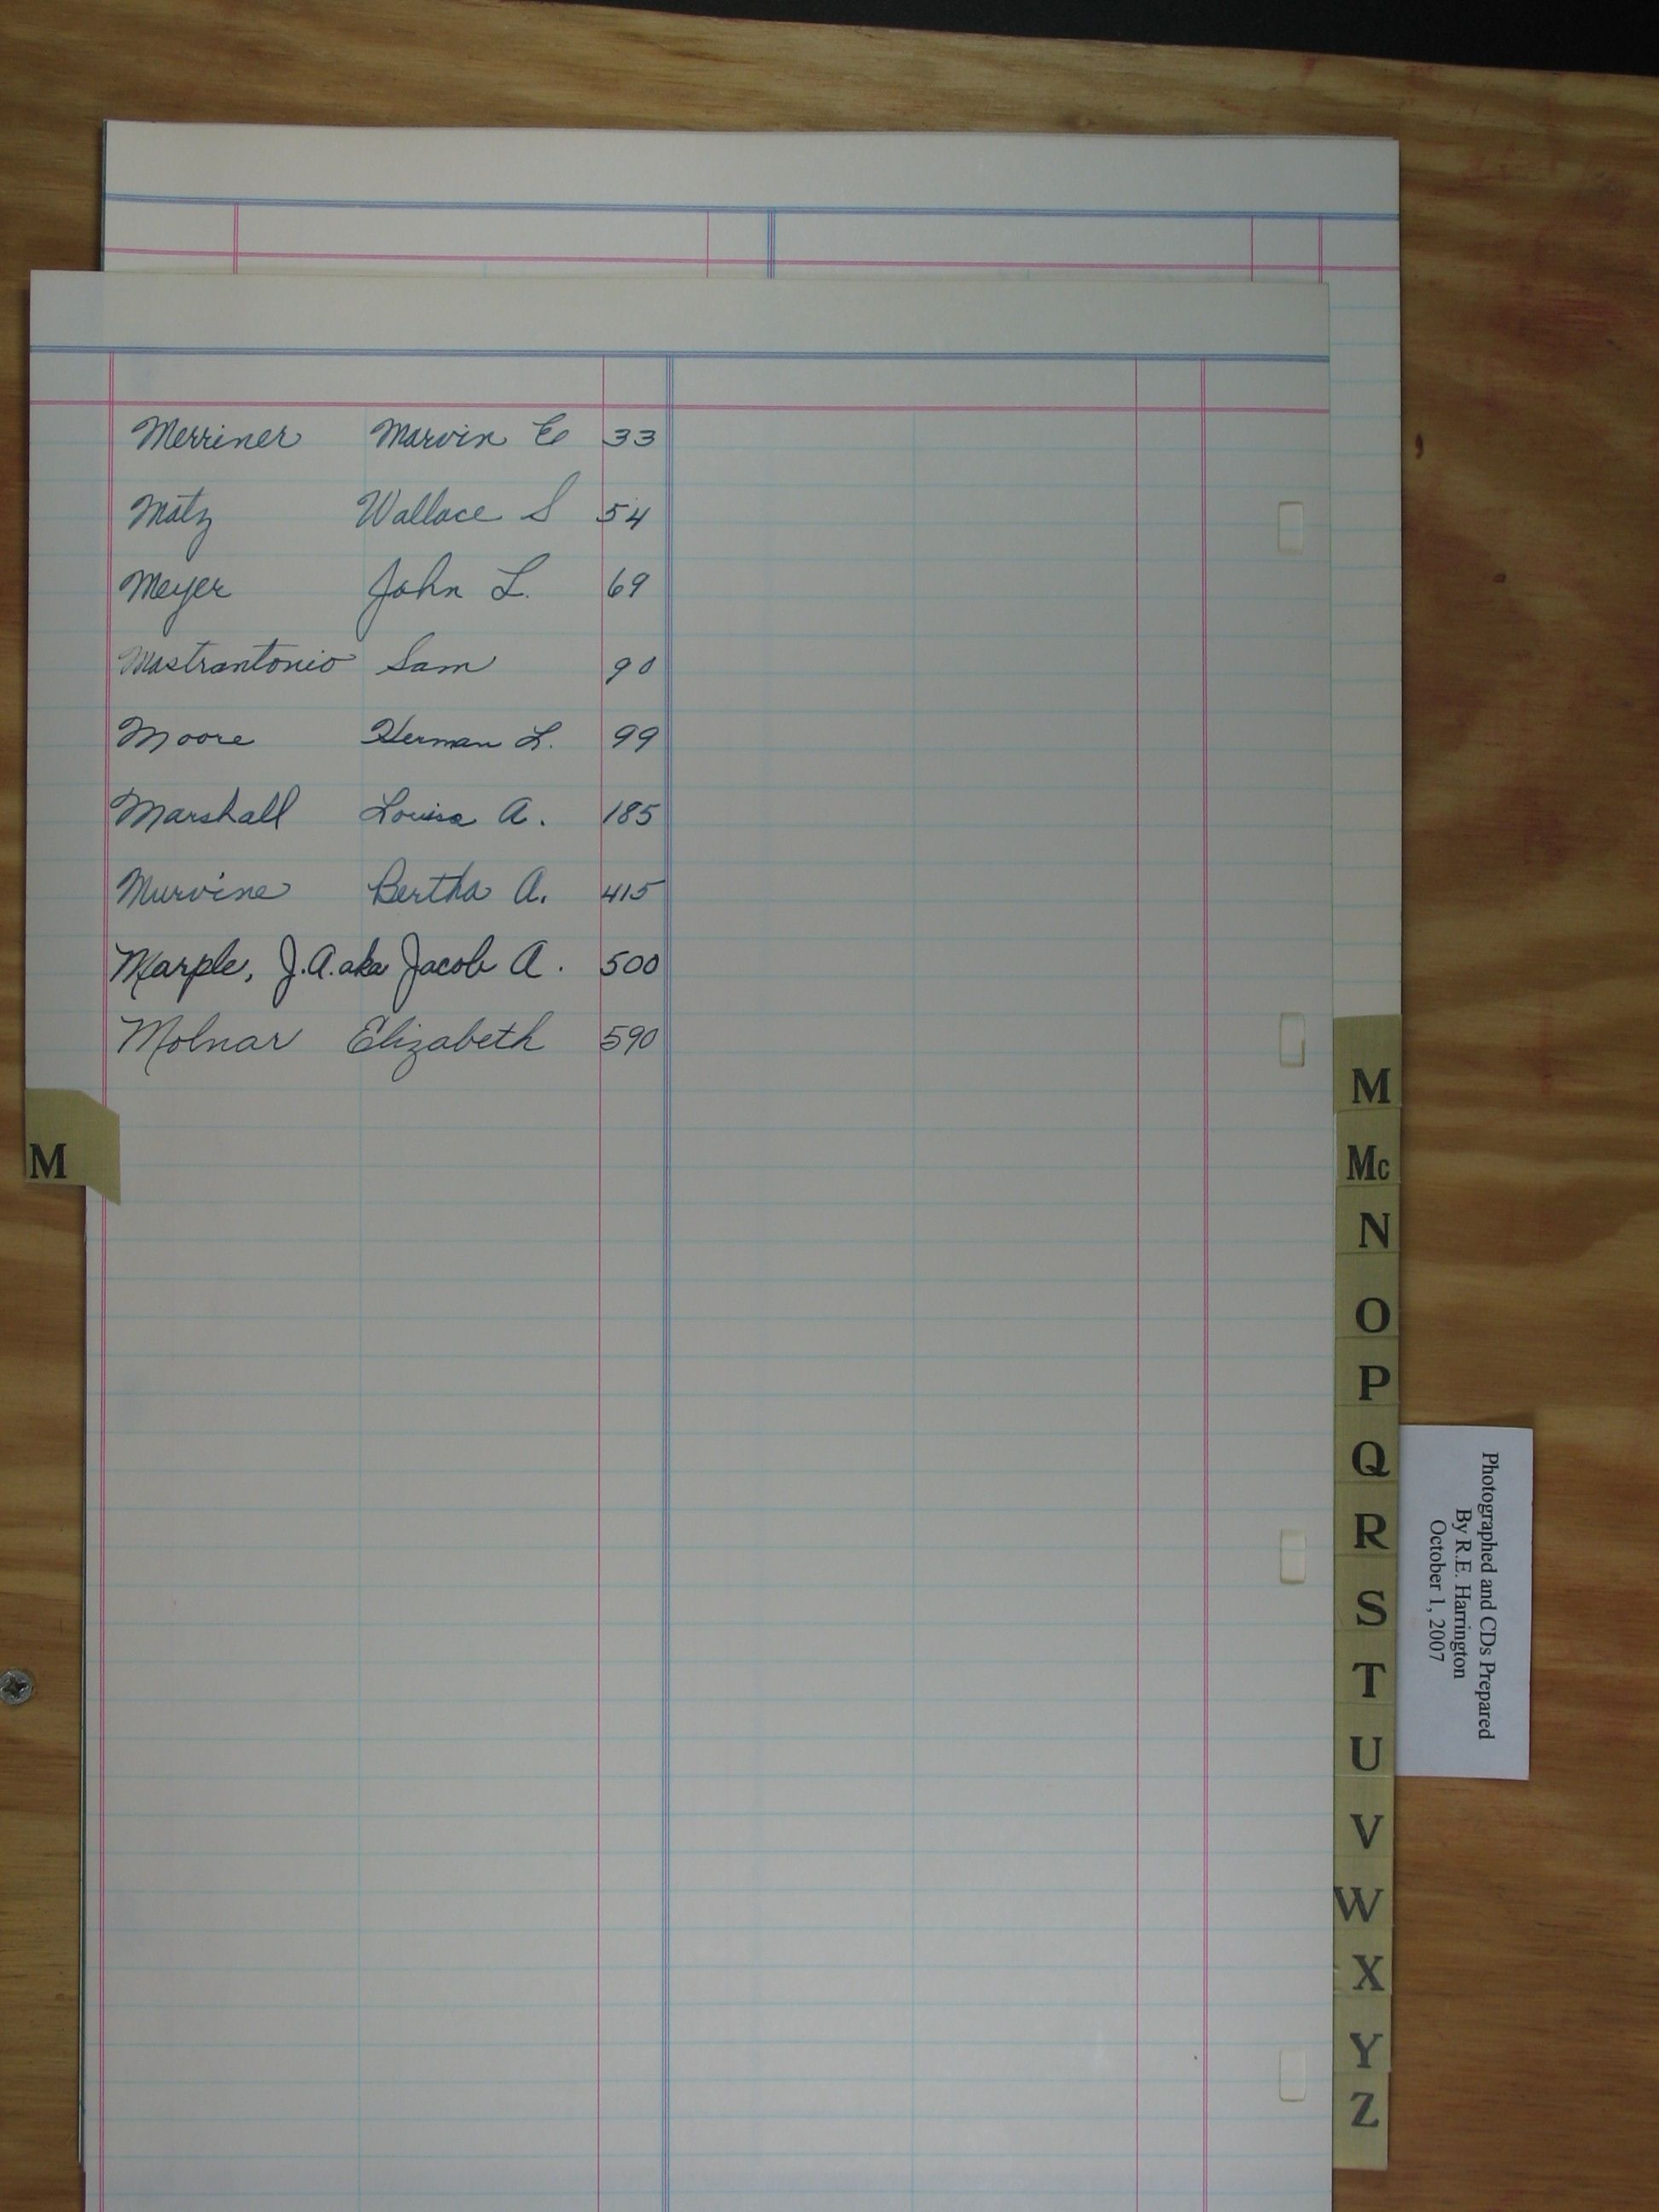 Merriner Marvin E 33
Matz Wallace S 54
Meyer John L. 69
Mastrantonio Sam 90
Moore Herman L. 99
Marshall Louisa A. 185
Murvine Bertha A. 415
Marple, J.A. aka Jacob A. 500
Molnar Elizabeth 590
M
M
Mc
N
O
P
Q
R
S
T
U
V
W
X
Y
Z
Photographed and CDs Prepared
By R.E. Harrington
October 1, 2007